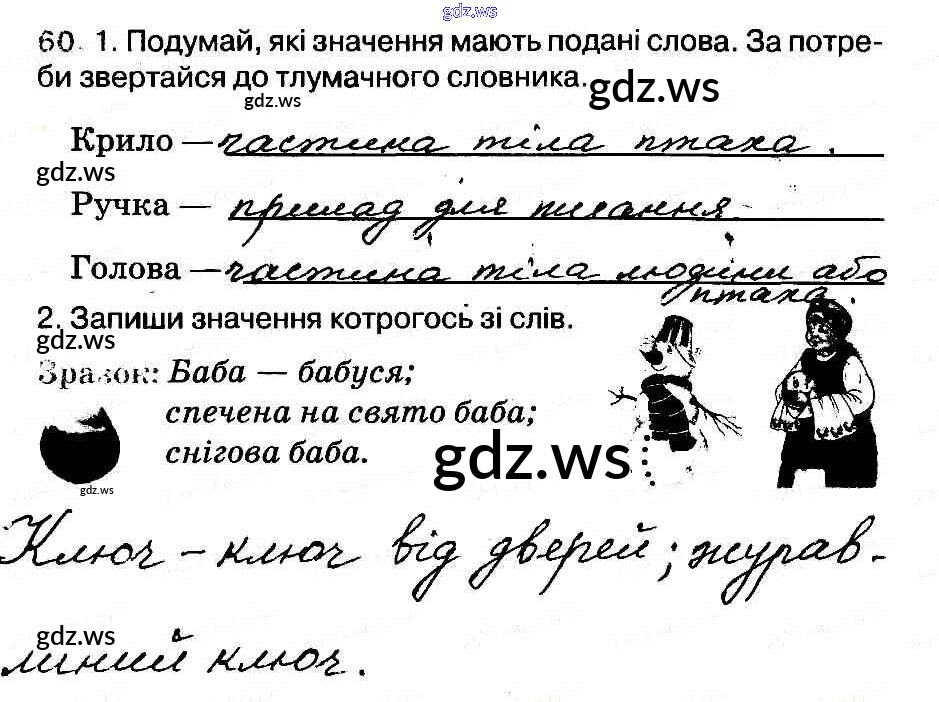 gdz.ws
60. 1. Подумай, які значення мають подані слова. За потре-
би звертайся до тлумачного словника.
gdz.ws
gdz.ws
Крило — частина тіла птаха.
gdz.ws
Ручка — прилад для писання
Голова — частина тіла людини або
птаха.
2. Запиши значення котрогось зі слів.
gdz.ws
Зразок: Баба — бабуся;
спечена на свято баба;
снігова баба.
gdz.ws
gdz.ws
Ключ - ключ від дверей; журав-
gdz.ws
линий ключ.